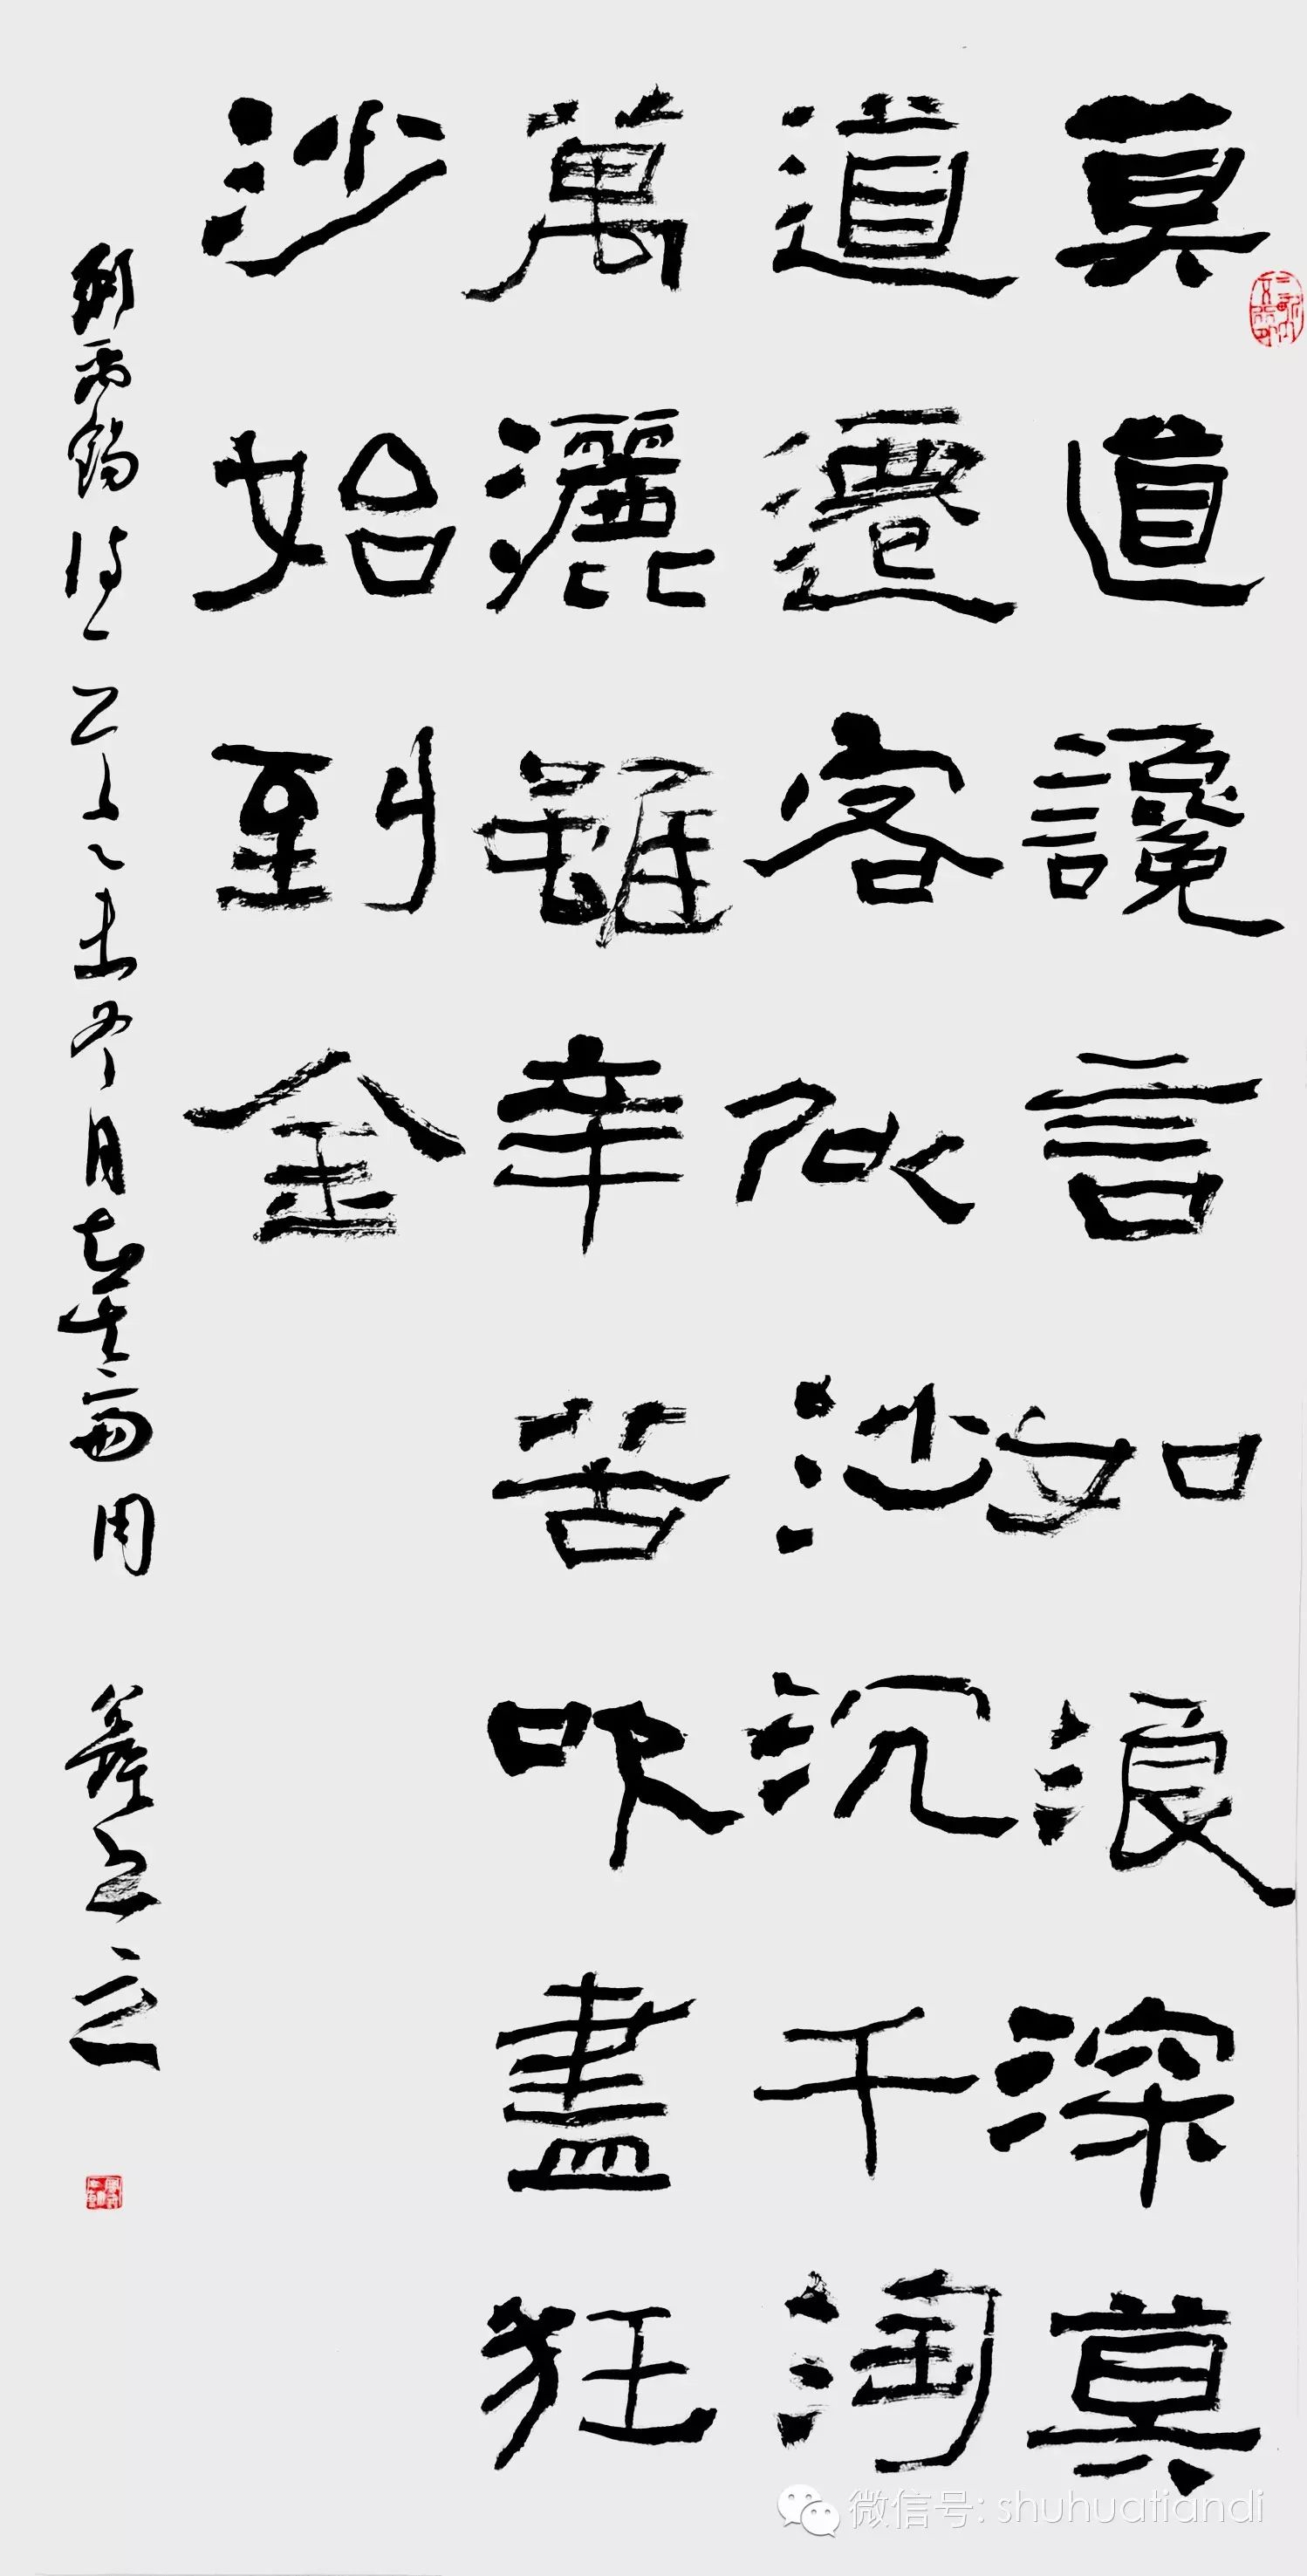 莫道讒言如浪深莫
道遷客似沙沉千淘
萬灑雖辛苦吹盡狂
沙始到金
劉禹錫詩一首乙未月
微信号: shuhuatiandi